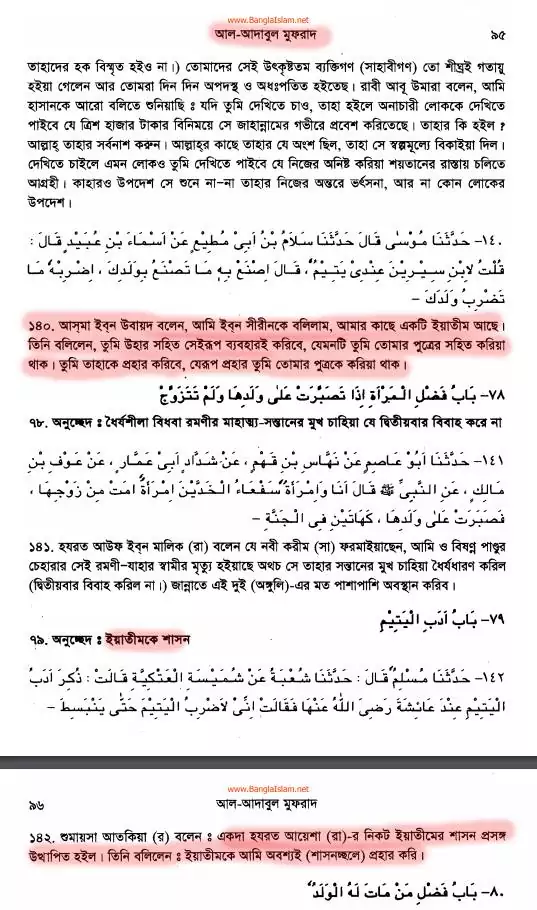 www.BanglaIslam.net
আল-আদাবুল মুফরাদ ৯৫
তাহাদের হক বিস্মৃত হইও না।) তোমাদের সেই উৎকৃষ্টতম ব্যক্তিগণ (সাহাবীগণ) তো শীঘ্রই গতায়ু
হইয়া গেলেন আর তোমরা দিন দিন অপদস্থ ও অধঃপতিত হইতেছ। রাবী আবূ উমারা বলেন, আমি
হাসানকে আরো বলিতে শুনিয়াছি ঃ যদি তুমি দেখিতে চাও, তাহা হইলে অনাচারী লোককে দেখিতে
পাইবে যে ত্রিশ হাজার টাকার বিনিময়ে সে জাহান্নামের গভীরে প্রবেশ করিতেছে। তাহার কি হইল ?
আল্লাহ্ তাহার সর্বনাশ করুন। আল্লাহ্‌র কাছে তাহার যে অংশ ছিল, তাহা সে স্বল্পমূল্যে বিকাইয়া দিল।
দেখিতে চাইলে এমন লোকও তুমি দেখিতে পাইবে যে নিজের অনিষ্ট করিয়া শয়তানের রাস্তায় চলিতে
আগ্রহী। কাহারও উপদেশ সে শুনে না–না তাহার নিজের অন্তরে ভর্ৎসনা, আর না কোন লোকের
উপদেশ।
١٤٠- حَدَّثَنَا مُوْسٰى قَالَ حَدَّثَنَا سَلَامُ بْنُ اَبِىْ مُطِيْعٍ عَنْ اَسْمَاءَ بْنِ عُبَيْدٍ قَالَ :
قُلْتُ لِابْنِ سِيْرِيْنَ عِنْدِىْ يَتِيْمٌ، قَالَ اِصْنَعْ بِهٖ مَا تَصْنَعُ بِوَلَدِكَ ، اِضْرِبْهُ مَا
تَضْرِبُ وَلَدَكَ –
১৪০. আস্‌মা ইব্‌ন উবায়দ বলেন, আমি ইব্‌ন সীরীনকে বলিলাম, আমার কাছে একটি ইয়াতীম আছে।
তিনি বলিলেন, তুমি উহার সহিত সেইরূপ ব্যবহারই করিবে, যেমনটি তুমি তোমার পুত্রের সহিত করিয়া
থাক। তুমি তাহাকে প্রহার করিবে, যেরূপ প্রহার তুমি তোমার পুত্রকে করিয়া থাক।
٧٨- بَابُ فَضْلِ الْمَرْأَةِ اِذَا تَصَبَّرَتْ عَلٰى وَلَدِهَا وَلَمْ تَتَزَوَّجْ
৭৮. অনুচ্ছেদ ঃ ধৈর্যশীলা বিধবা রমণীর মাহাত্ম্য-সন্তানের মুখ চাহিয়া যে দ্বিতীয়বার বিবাহ করে না
١٤١- حَدَّثَنَا اَبُوْ عَاصِمٍ عَنْ نَهَّاسِ بْنِ قَهْمٍ ، عَنْ شَدَّادٍ اَبِىْ عَمَّارٍ ، عَنْ عَوْفِ بْنِ
مَالِكٍ ، عَنِ النَّبِىِّ ﷺ قَالَ اَنَا وَاِمْرَأَةٌ سَفْعَاءُ الْخَدَّيْنِ اِمْرَأَةٌ اٰمَتْ مِنْ زَوْجِهَا ،
فَصَبَرَتْ عَلٰى وَلَدِهَا ، كَهَاتَيْنِ فِى الْجَنَّةِ –
১৪১. হযরত আউফ ইব্‌ন মালিক (রা) বলেন যে নবী করীম (সা) ফরমাইয়াছেন, আমি ও বিষণ্ন পাণ্ডুর
চেহারার সেই রমণী–যাহার স্বামীর মৃত্যু হইয়াছে অথচ সে তাহার সন্তানের মুখ চাহিয়া ধৈর্যধারণ করিল
(দ্বিতীয়বার বিবাহ করিল না।) জান্নাতে এই দুই (অঙ্গুলি)-এর মত পাশাপাশি অবস্থান করিব।
٧٩- بَابُ اَدَبِ الْيَتِيْمِ
৭৯. অনুচ্ছেদ ঃ ইয়াতীমকে শাসন
١٤٢- حَدَّثَنَا مُسْلِمٌ قَالَ : حَدَّثَنَا شُعْبَةُ عَنْ شُمَيْسَةِ الْعَتَكِيَّةِ قَالَتْ : ذُكِرَ اَدَبُ
الْيَتِيْمِ عِنْدَ عَائِشَةَ رَضِىَ اللّٰهُ عَنْهَا فَقَالَتْ اِنِّىْ لَاَضْرِبُ الْيَتِيْمَ حَتّٰى يَنْبَسِطَ –
www.BanglaIslam.net
৯৬ আল-আদাবুল মুফরাদ
১৪২. শুমায়সা আতকিয়া (র) বলেন ঃ একদা হযরত আয়েশা (রা)-র নিকট ইয়াতীমের শাসন প্রসঙ্গ
উত্থাপিত হইল। তিনি বলিলেন ঃ ইয়াতীমকে আমি অবশ্যই (শাসনচ্ছলে) প্রহার করি।
٨٠- بَابُ فَضْلِ مَنْ مَاتَ لَهُ الْوَلَدُ